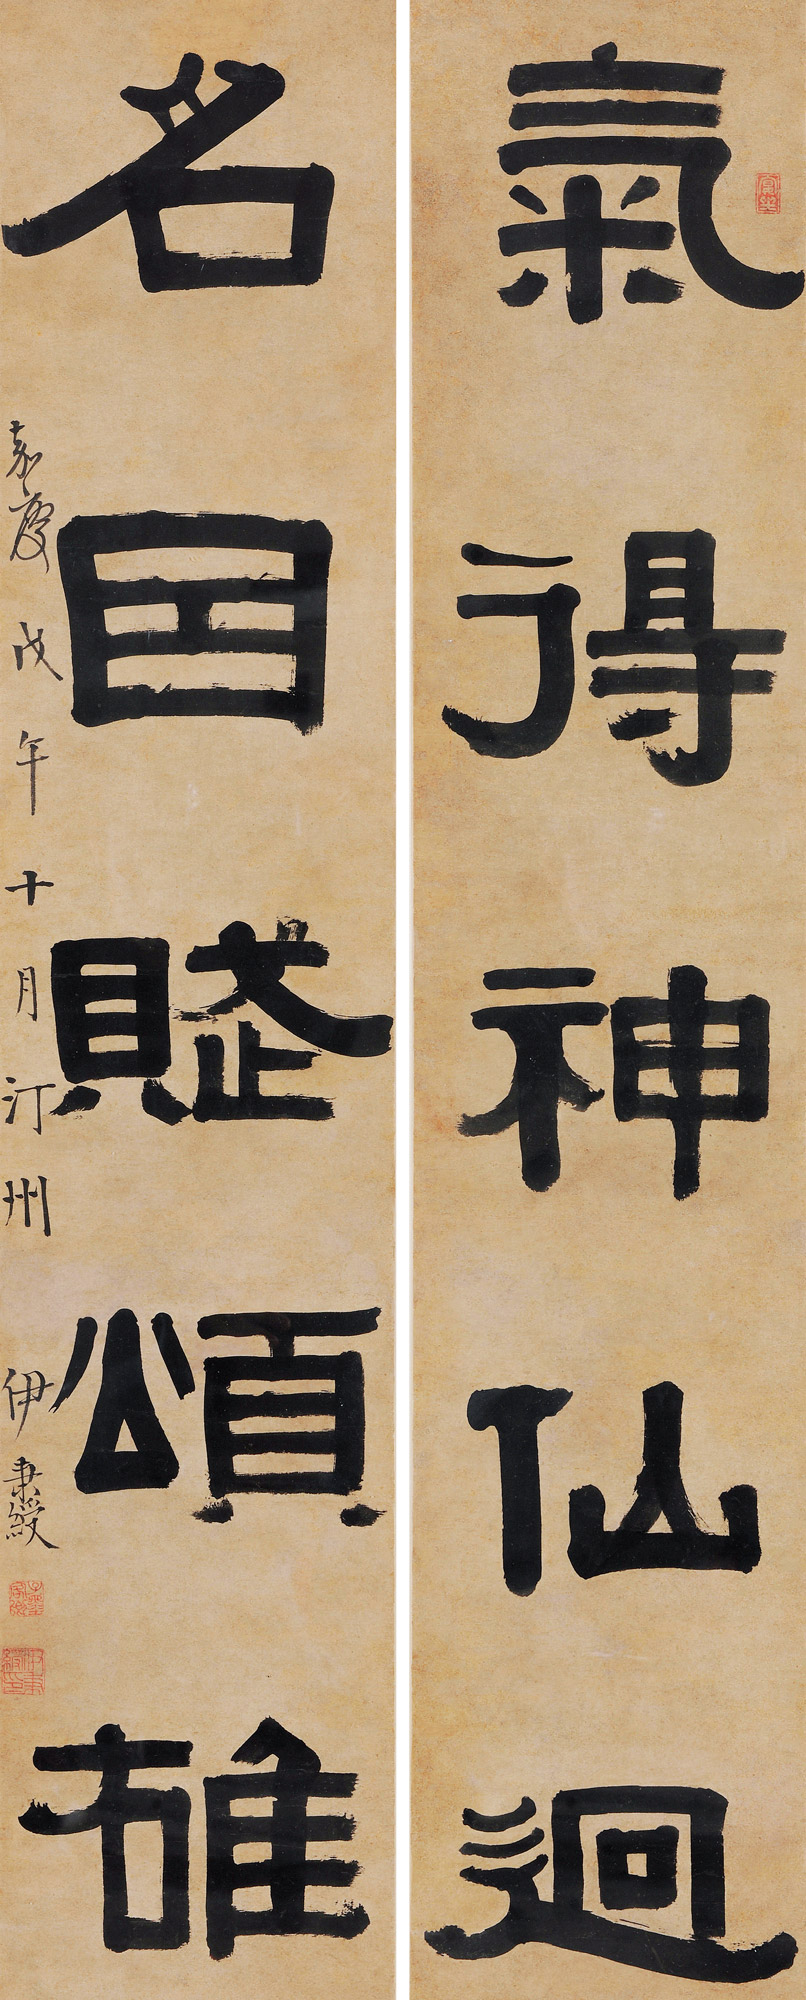 氣得神仙迥
名因賦頌雄
嘉慶戊午十月汀州伊秉綬
伊秉綬印